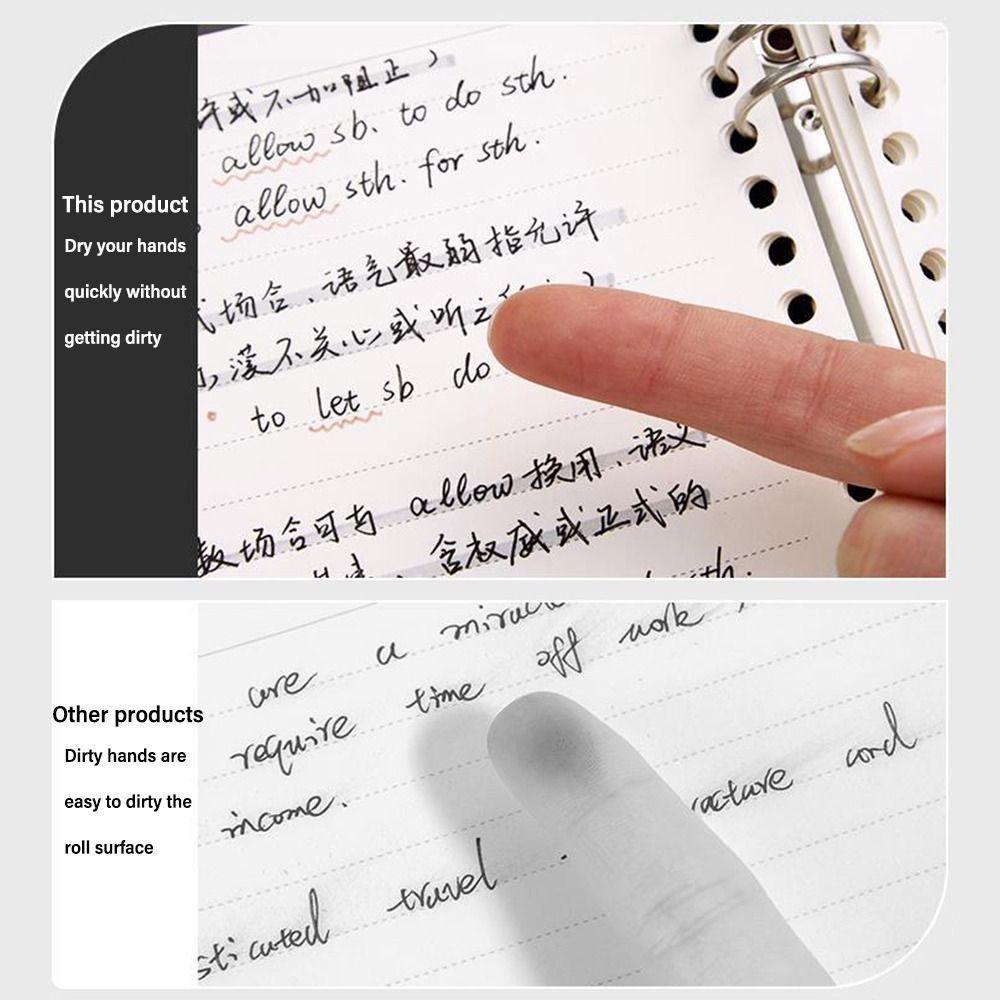 This product
Dry your hands
quickly without
getting dirty
许或不加阻正）
allow sb. to do sth.
allow sth. for sth.
式场合、语气最弱指允许
漠不关心或听之
to let sb do
数场合可与 allow 换用、语义
含权威或正式的
sth.
Other products
Dirty hands are
easy to dirty the
roll surface
are a
require time off work
income.
cord
travel